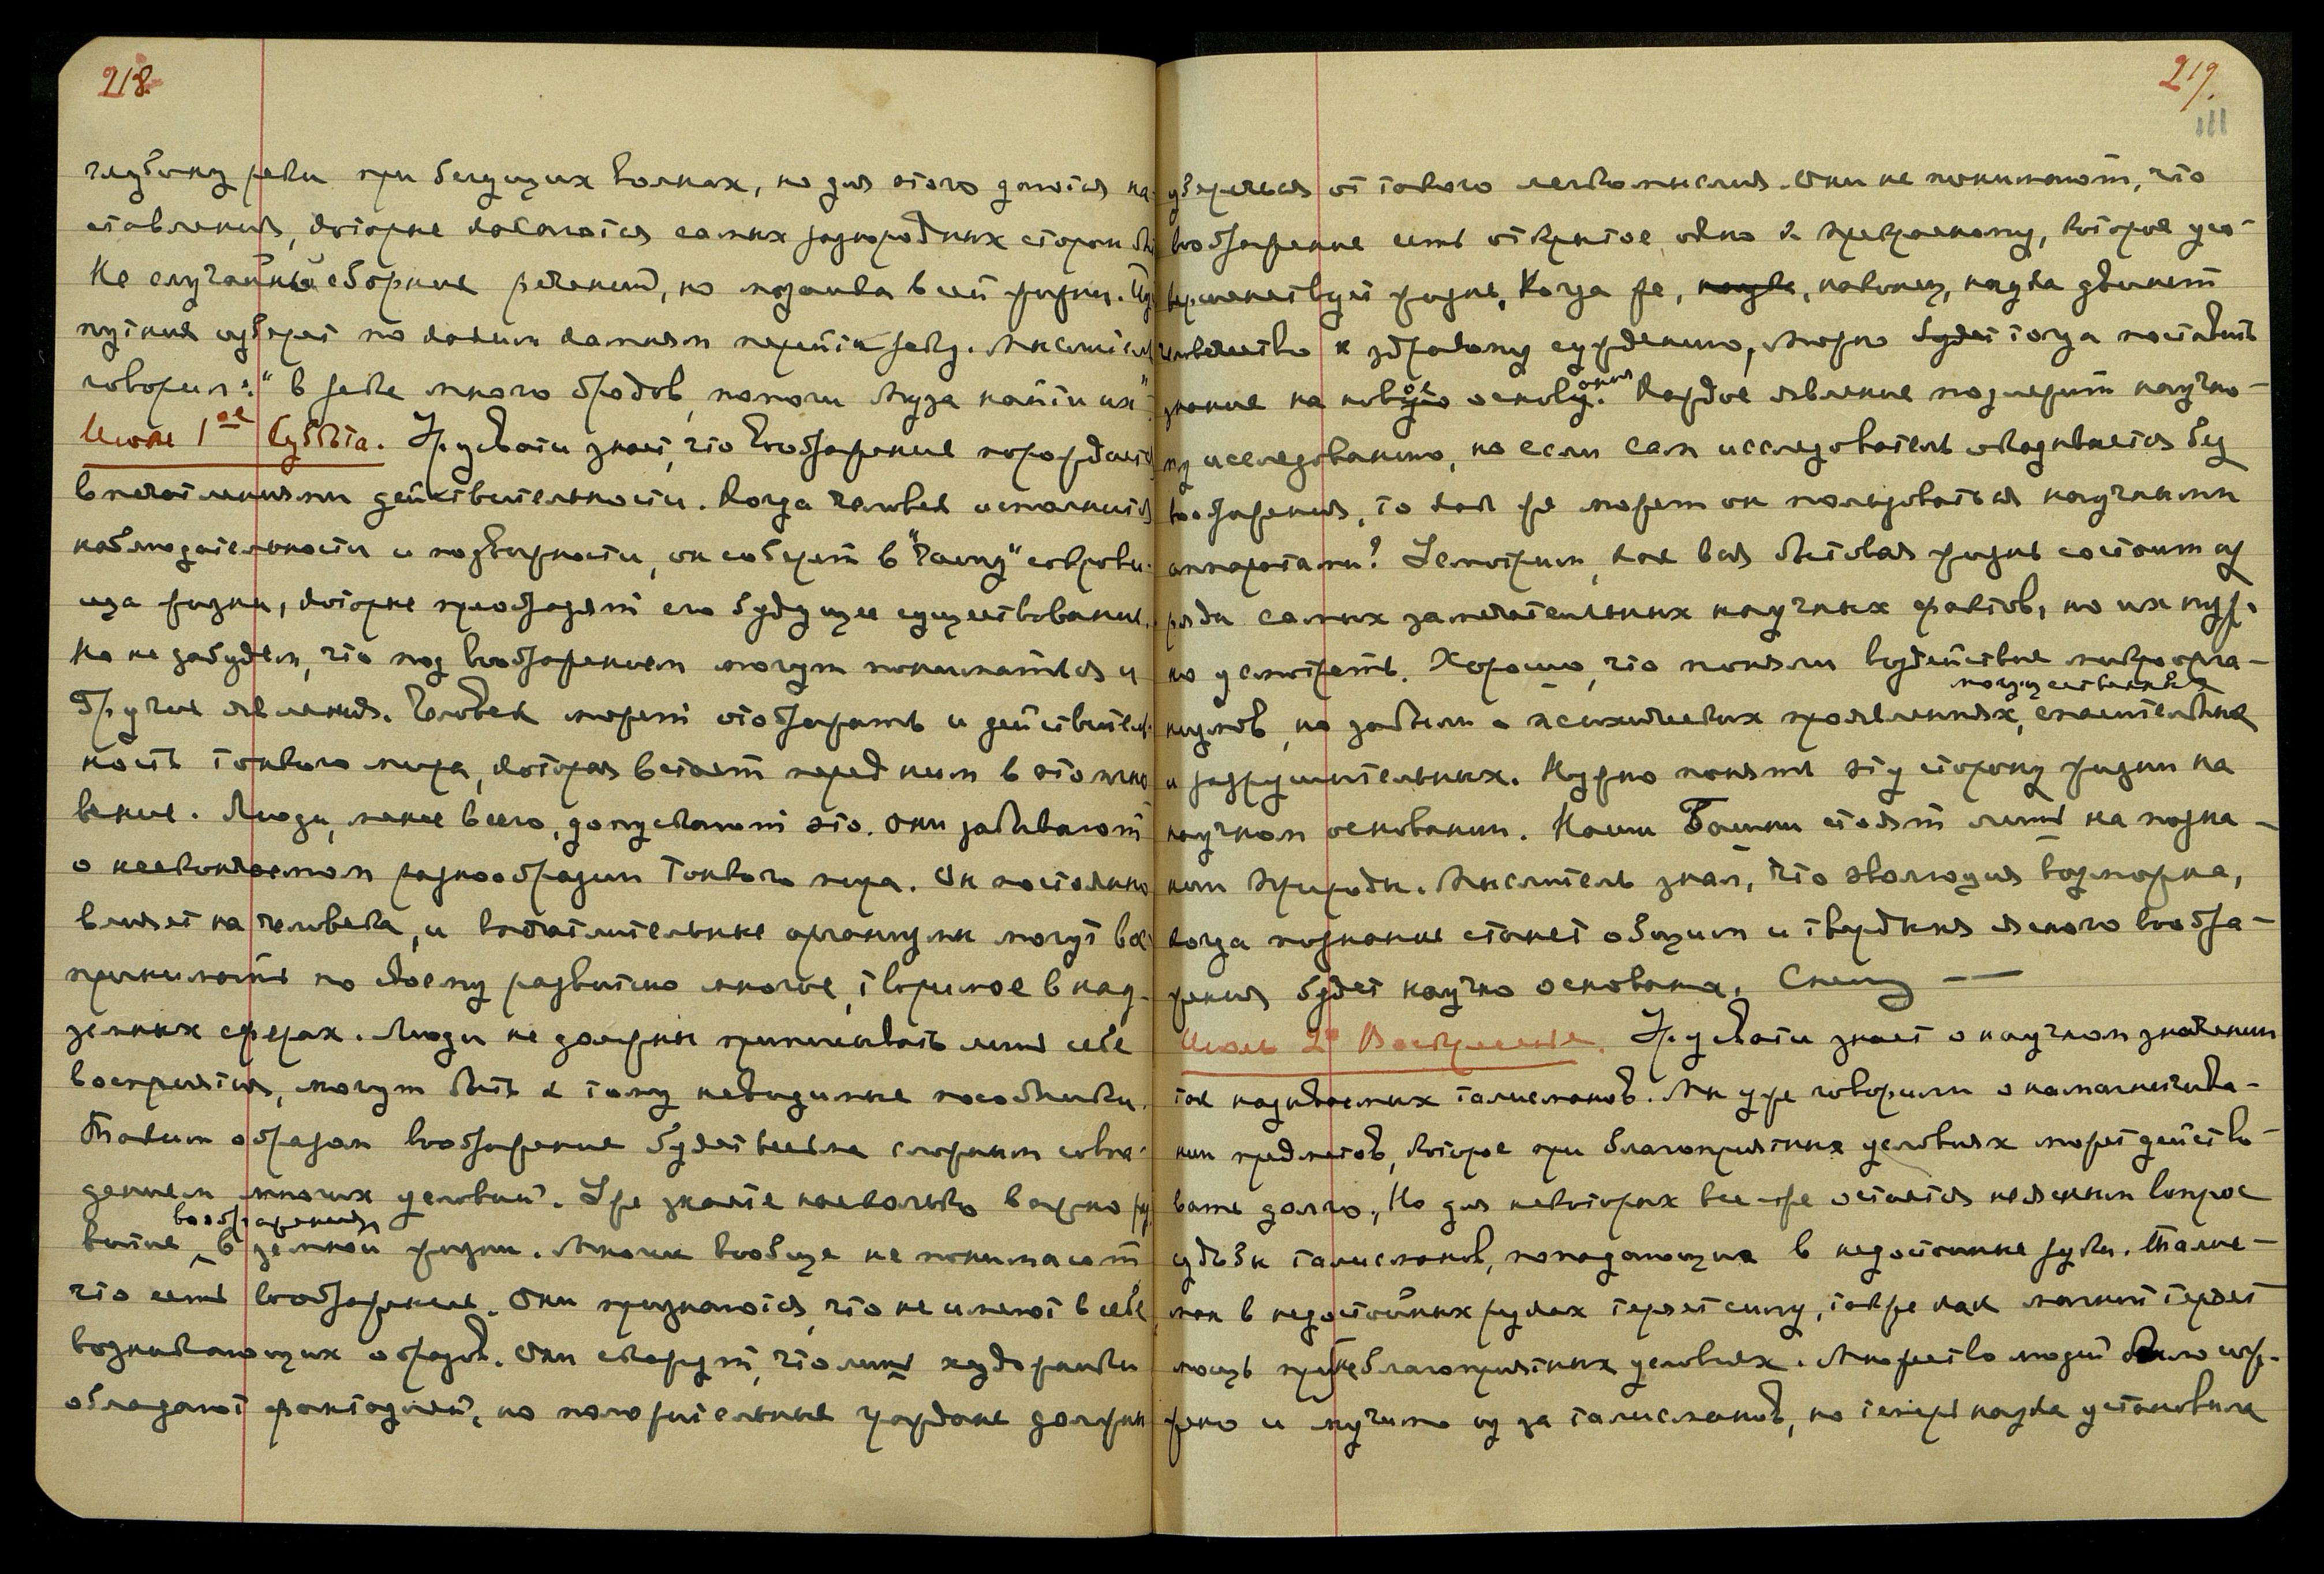 218.
глубину реки при бегущих волнах, но для этого даются на-
ставления, которые касаются самых разнородных сторон бы
Не случайный сборник речений, но мозаика всей жизни. Пу
путник изберет по каким камням перейти реку. Мыслитель
говорил: "в реке много бродов, помоги Муза найти их"
Июля 1-ое Суббота. Урусвати знает, что воображение порождается
впечатлениями действительности. Когда человек исполнится
наблюдательности и подвижности, он соберет в "Чашу" сокрови-
ща жизни, которые преобразят его будущее существование.
Но не забудем, что под воображением могут пониматься и
другие явления. Человек может отображать и действитель-
ность тонкого мира, которая встает перед ним в это мгно
вение. Люди, менее всего, допускают это. Они забывают
о несконечаемом разнообразии Тонкого мира. Он постоянно
влияет на человека, и впечатлительные организмы могут вос
принимать по своему развитию многое, творимое в над-
земных сферах. Люди не должны приписывать лишь себе
восприятия, могут быть к тому невидимые пособники.
Таким образом воображение будет весьма сложным совпа-
дением многих условий. Уже знаете насколько важно раз
витие воображения в земной жизни. Многие вообще не понимают
что есть воображение. Они признаются, что не имеют в себе
возникающих образов. Они скажут, что лишь художники
обладают фантазией, но положительные граждане должны
219.
111
удержаться от такого легкомыслия. Они не понимают, что
воображение есть открытое окно к прекрасному, которое усо-
вершенствует жизнь. Когда же, наконец, наука двинет
человечество к здравому суждению, можно будет тогда поставить
знание на новые основания. Каждое явление подлежит научно-
му исследованию, но если сам исследователь окажется без
воображения, то как же может он пользоваться научными
аппаратами? Усмотрим, как вся бытовая жизнь состоит из
ряда самых замечательных научных фактов, но их нуж-
но усмотреть. Хорошо, что поняли воздействие микроорга-
низмов, но забыли о психических проявлениях, могущественных спасительных
и разрушительных. Нужно понять эту сторону жизни на
научном основании. Наши Башни стоят лишь на позна-
нии Природы. Мыслитель знал, что эволюция возможна,
когда познание станет общим и твердыня ясного вообра-
жения будет научно основана. Спешу —
Июль 2е Воскресенье. Урусвати знает о научном значении
так называемых талисманов. Мы уже говорили о намагничива-
нии предметов, которое при благоприятных условиях может действо-
вать долго. Но для некоторых все-же остается неясным вопрос
судьбы талисманов, попадающих в недостойные руки. Талис-
ман в недостойных руках теряет силу, также как магнит теряет
мощь при неблагоприятных условиях. Множество людей было сож-
жено и мучимо из за талисманов, но теперь наука установила